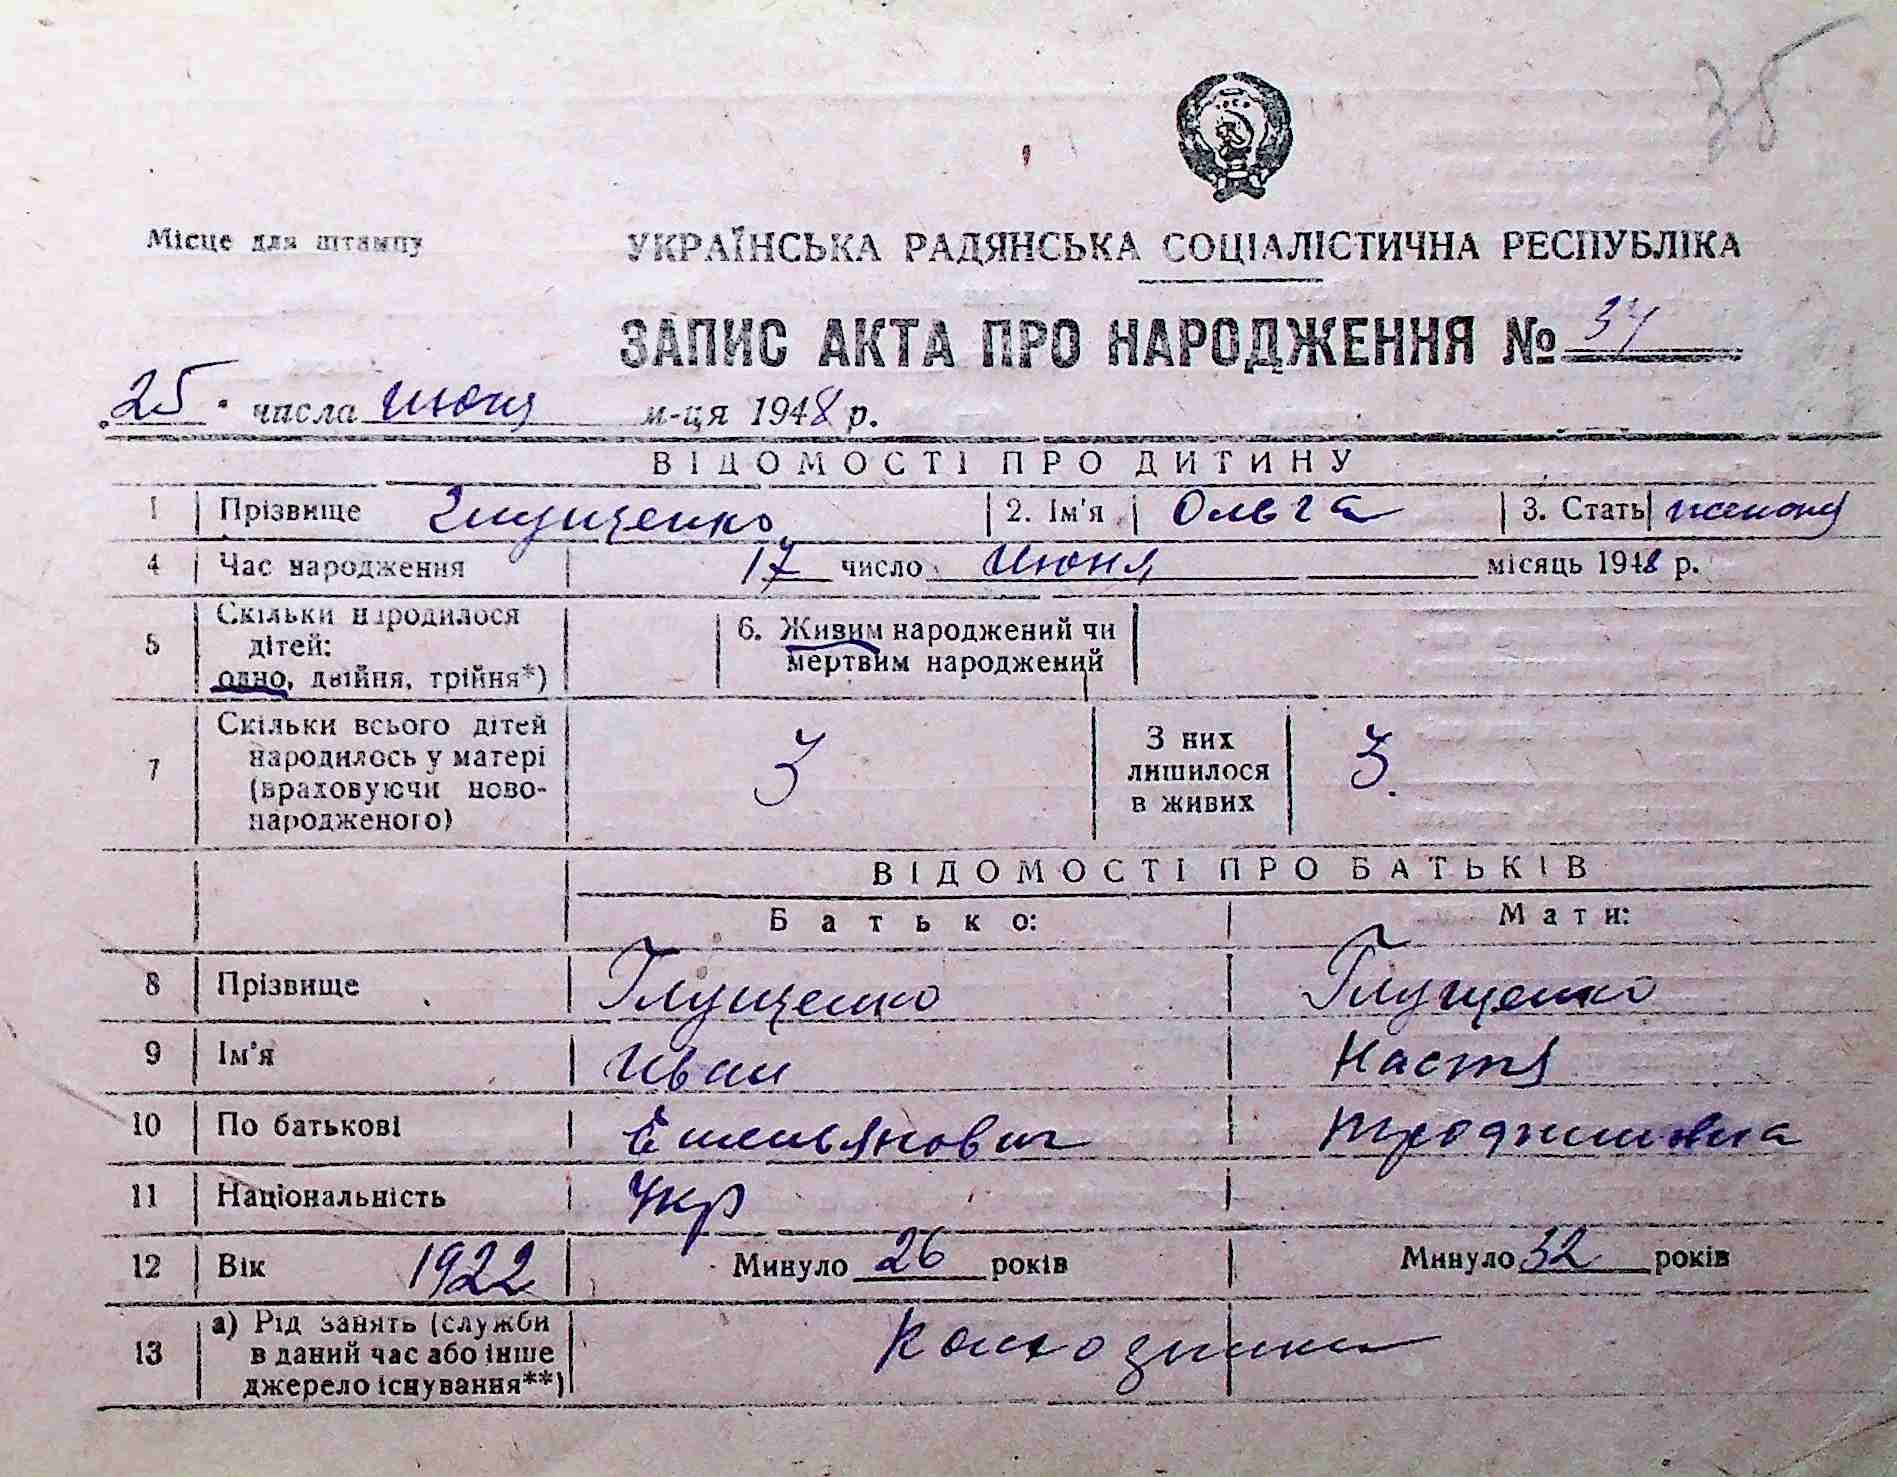 38
Місце для штампу
УКРАЇНСЬКА РАДЯНСЬКА СОЦІАЛІСТИЧНА РЕСПУБЛІКА
ЗАПИС АКТА ПРО НАРОДЖЕННЯ № 34
25 числа июня м-ця 1948 р.
ВІДОМОСТІ ПРО ДИТИНУ
1 Прізвище Глущенко 2. Ім'я Ольга 3. Стать женский
4 Час народження 17 число июня місяць 1948 р.
5 Скільки народилося
дітей:
одно, двійня, трійня*)
6. Живим народжений чи
мертвим народжений
7 Скільки всього дітей
народилось у матері
(враховуючи ново-
народженого)
3
З них
лишилося
в живих
3.
ВІДОМОСТІ ПРО БАТЬКІВ
Батько: Мати:
8 Прізвище Глущенко Глущенко
9 Ім'я Иван Настя
10 По батькові Емельянович
11 Національність Укр
12 Вік 1922 Минуло 26 років Минуло 32 років
13 а) Рід занять (служби
в даний час або інше
джерело існування**)
Колхозники